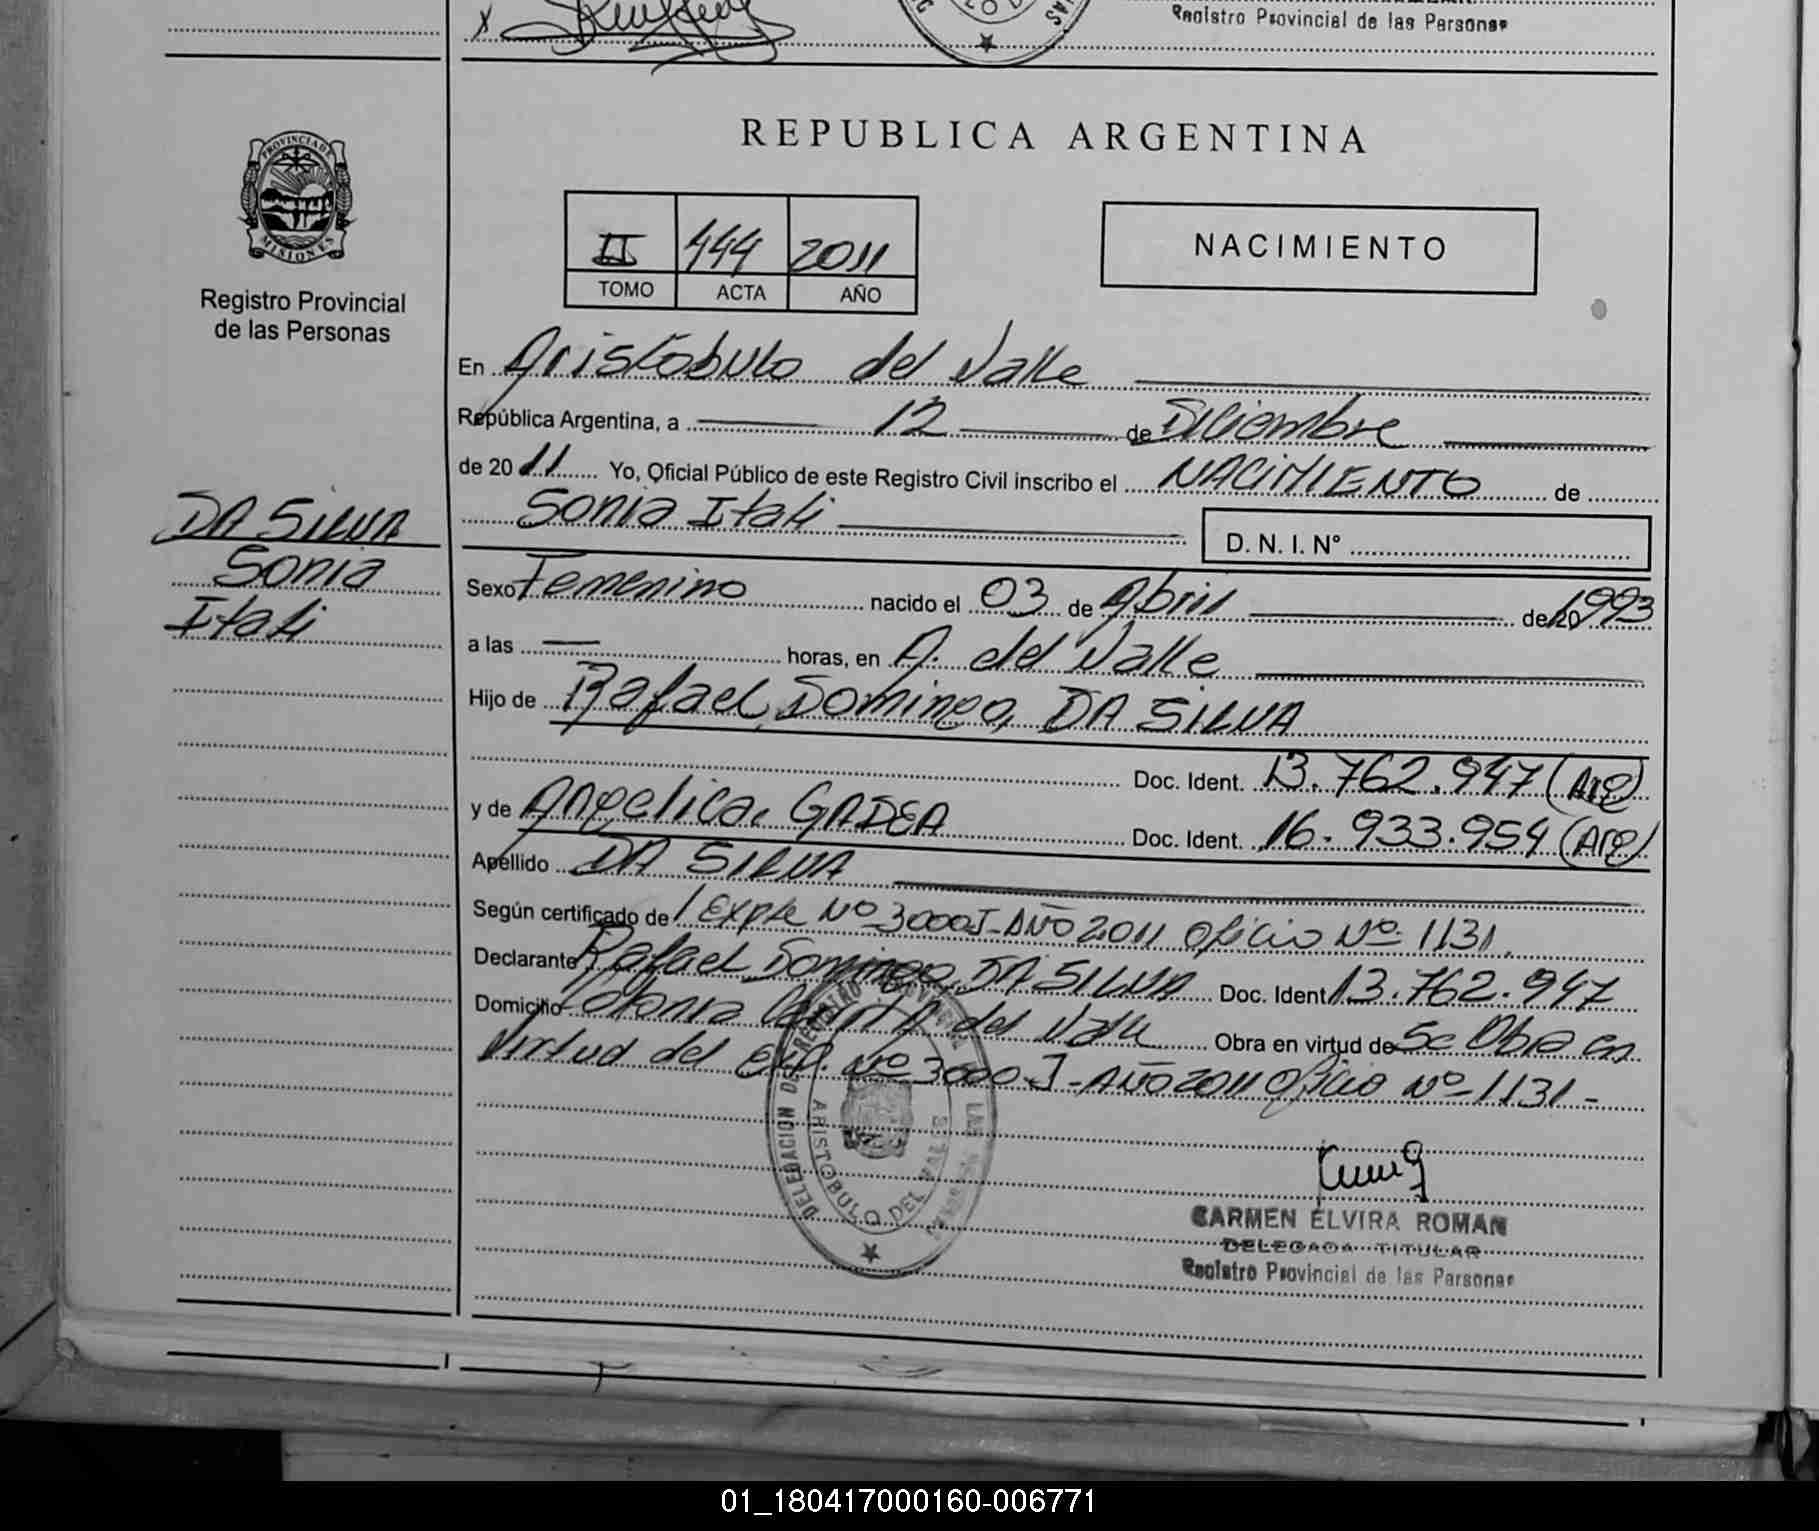 Registro Provincial de las Personas
PROVINCIA DE
MISIONES
Registro Provincial
de las Personas
REPUBLICA ARGENTINA
II 444 2011
TOMO ACTA AÑO
NACIMIENTO
En Aristóbulo del Valle
República Argentina, a 12 de Diciembre
de 20 11 Yo, Oficial Público de este Registro Civil inscribo el NACIMIENTO de
Sonia Itati
D. N. I. N°
DA SILVA
Sonia
Itati
Sexo Femenino nacido el 03 de Abril de 20 1993
a las — horas, en A. del Valle
Hijo de Rafael Domingo, DA SILVA
Doc. Ident. 13.762.947 (Arg)
y de Angelica, GADEA Doc. Ident. 16.933.954 (Arg)
Apellido DA SILVA
Según certificado de Expte Nº 3000J-AÑO 2011 Oficio Nº 1131.
Declarante Rafael Domingo, DA SILVA Doc. Ident 13.762.947
Domicilio Colonia del Valle Obra en virtud de Se Obra en
virtud del Exp. Nº 3000-J-AÑO 2011 Oficio Nº 1131-
DELEGACION DEL REGISTRO PROVINCIAL DE LAS PERSONAS
ARISTOBULO DEL VALLE
CARMEN ELVIRA ROMAN
DELEGADA TITULAR
Registro Provincial de las Personas
01_180417000160-006771